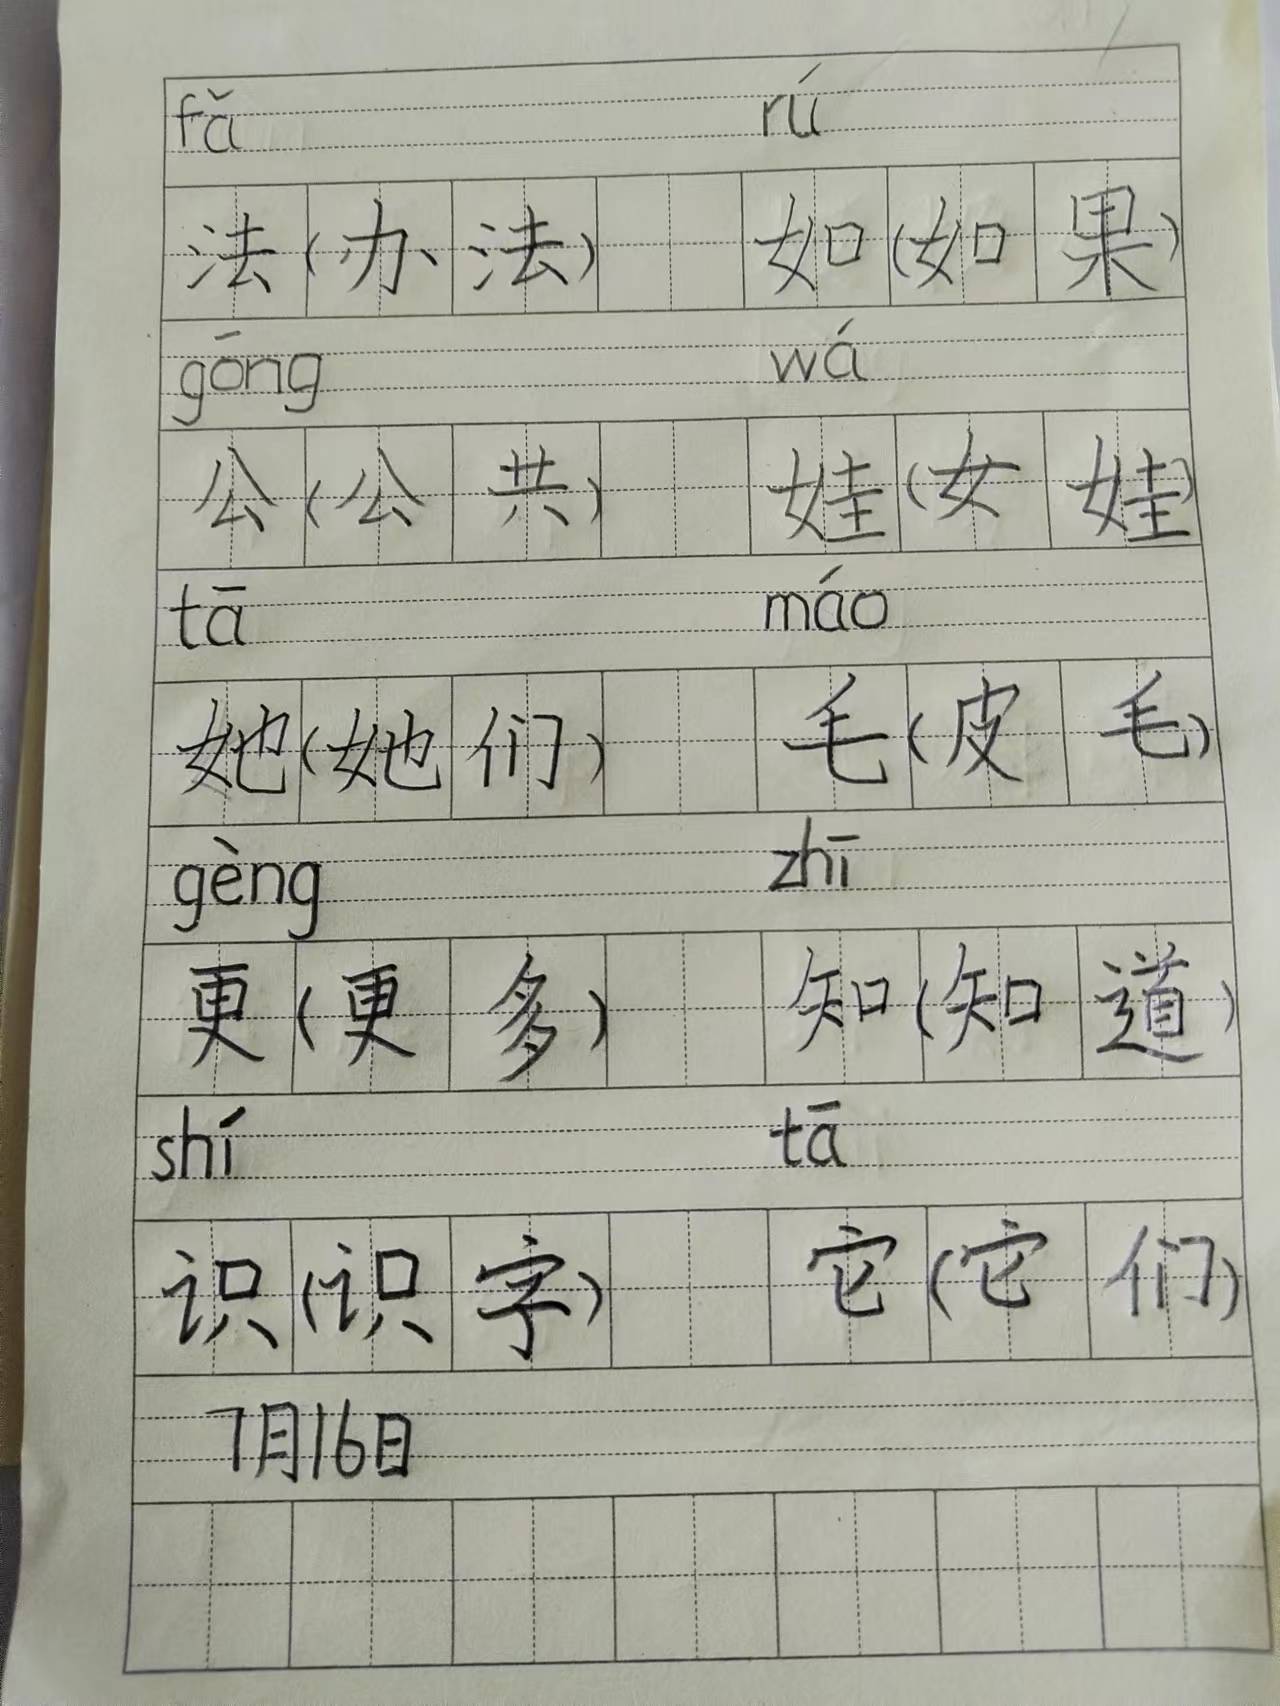 fǎ rú
法(办法) 如(如果)
gōng wá
公(公共) 娃(女娃)
tā máo
她(她们) 毛(皮毛)
gèng zhī
更(更多) 知(知道)
shí tā
识(识字) 它(它们)
7月16日